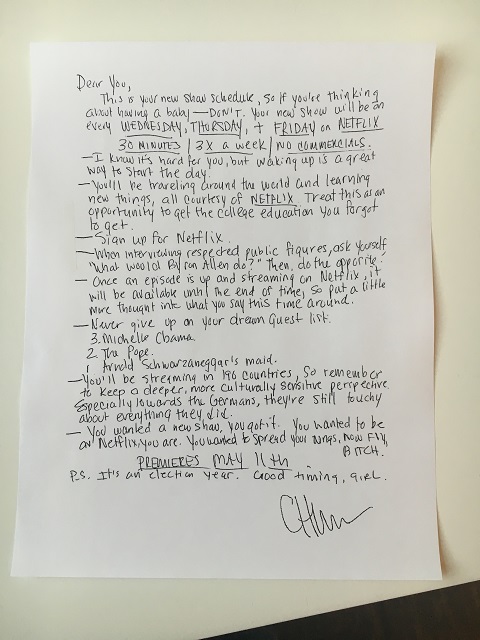 Dear You,
This is your new show schedule, so if you're thinking
about having a baby—DON'T. Your new show will be on
every WEDNESDAY, THURSDAY, + FRIDAY on NETFLIX
30 MINUTES | 3X a week | NO COMMERCIALS.
—I know it's hard for you, but waking up is a great
way to start the day.
—You'll be traveling around the world and learning
new things, all courtesy of NETFLIX. Treat this as an
opportunity to get the college education you forgot
to get.
—Sign up for Netflix.
—When interviewing respected public figures, ask yourself
"What would Byron Allen do?" Then, do the opposite.
— Once an episode is up and streaming on Netflix, it
will be available until the end of time, so put a little
more thought into what you say this time around.
—Never give up on your dream Guest list.
3. Michelle Obama
2. The Pope.
1 Arnold Schwarzaneggar's maid.
—You'll be streaming in 190 countries, so remember
to keep a deeper, more culturally sensitive perspective
Especially towards the Germans, they're still touchy
about everything they did.
— You wanted a new show, you got it. You wanted to be
on Netflix, you are. You wanted to spread your wings, now FLY,
BITCH.
PREMIERES MAY 11th.
P.S. It's an election year. Good timing, girl.